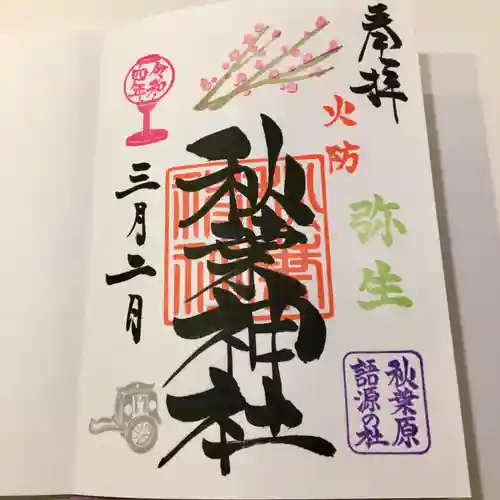 奉拝
火防
弥生
秋葉原
語源の社
秋葉神社
令和
四年
三月二日